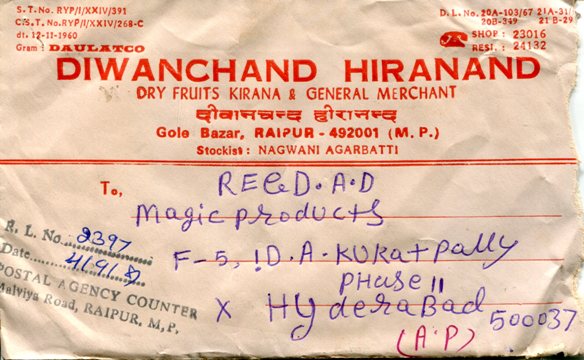 S. T. No. RYP/I/XXIV/391
C.S.T. No. RYP/I/XXIV/268-C
dt. 12-11-1960
Gram : DAULATCO
D. L. No. 20A-103/67 21A-31/
20B-349 21 B-29
SHOP : 23016
RESI. : 24132
DIWANCHAND HIRANAND
DRY FRUITS KIRANA & GENERAL MERCHANT
दीवानचन्द हीरानन्द
Gole Bazar, RAIPUR - 492001 (M. P.)
Stockist : NAGWANI AGARBATTI
To,
REGD. A.D
Magic products
F-5, I.D.A. KUKATPally
PHASE II
X HYderabad
500037
(A.P)
R. L. No. 2397
Date
POSTAL AGENCY COUNTER
Malviya Road, RAIPUR, M.P.